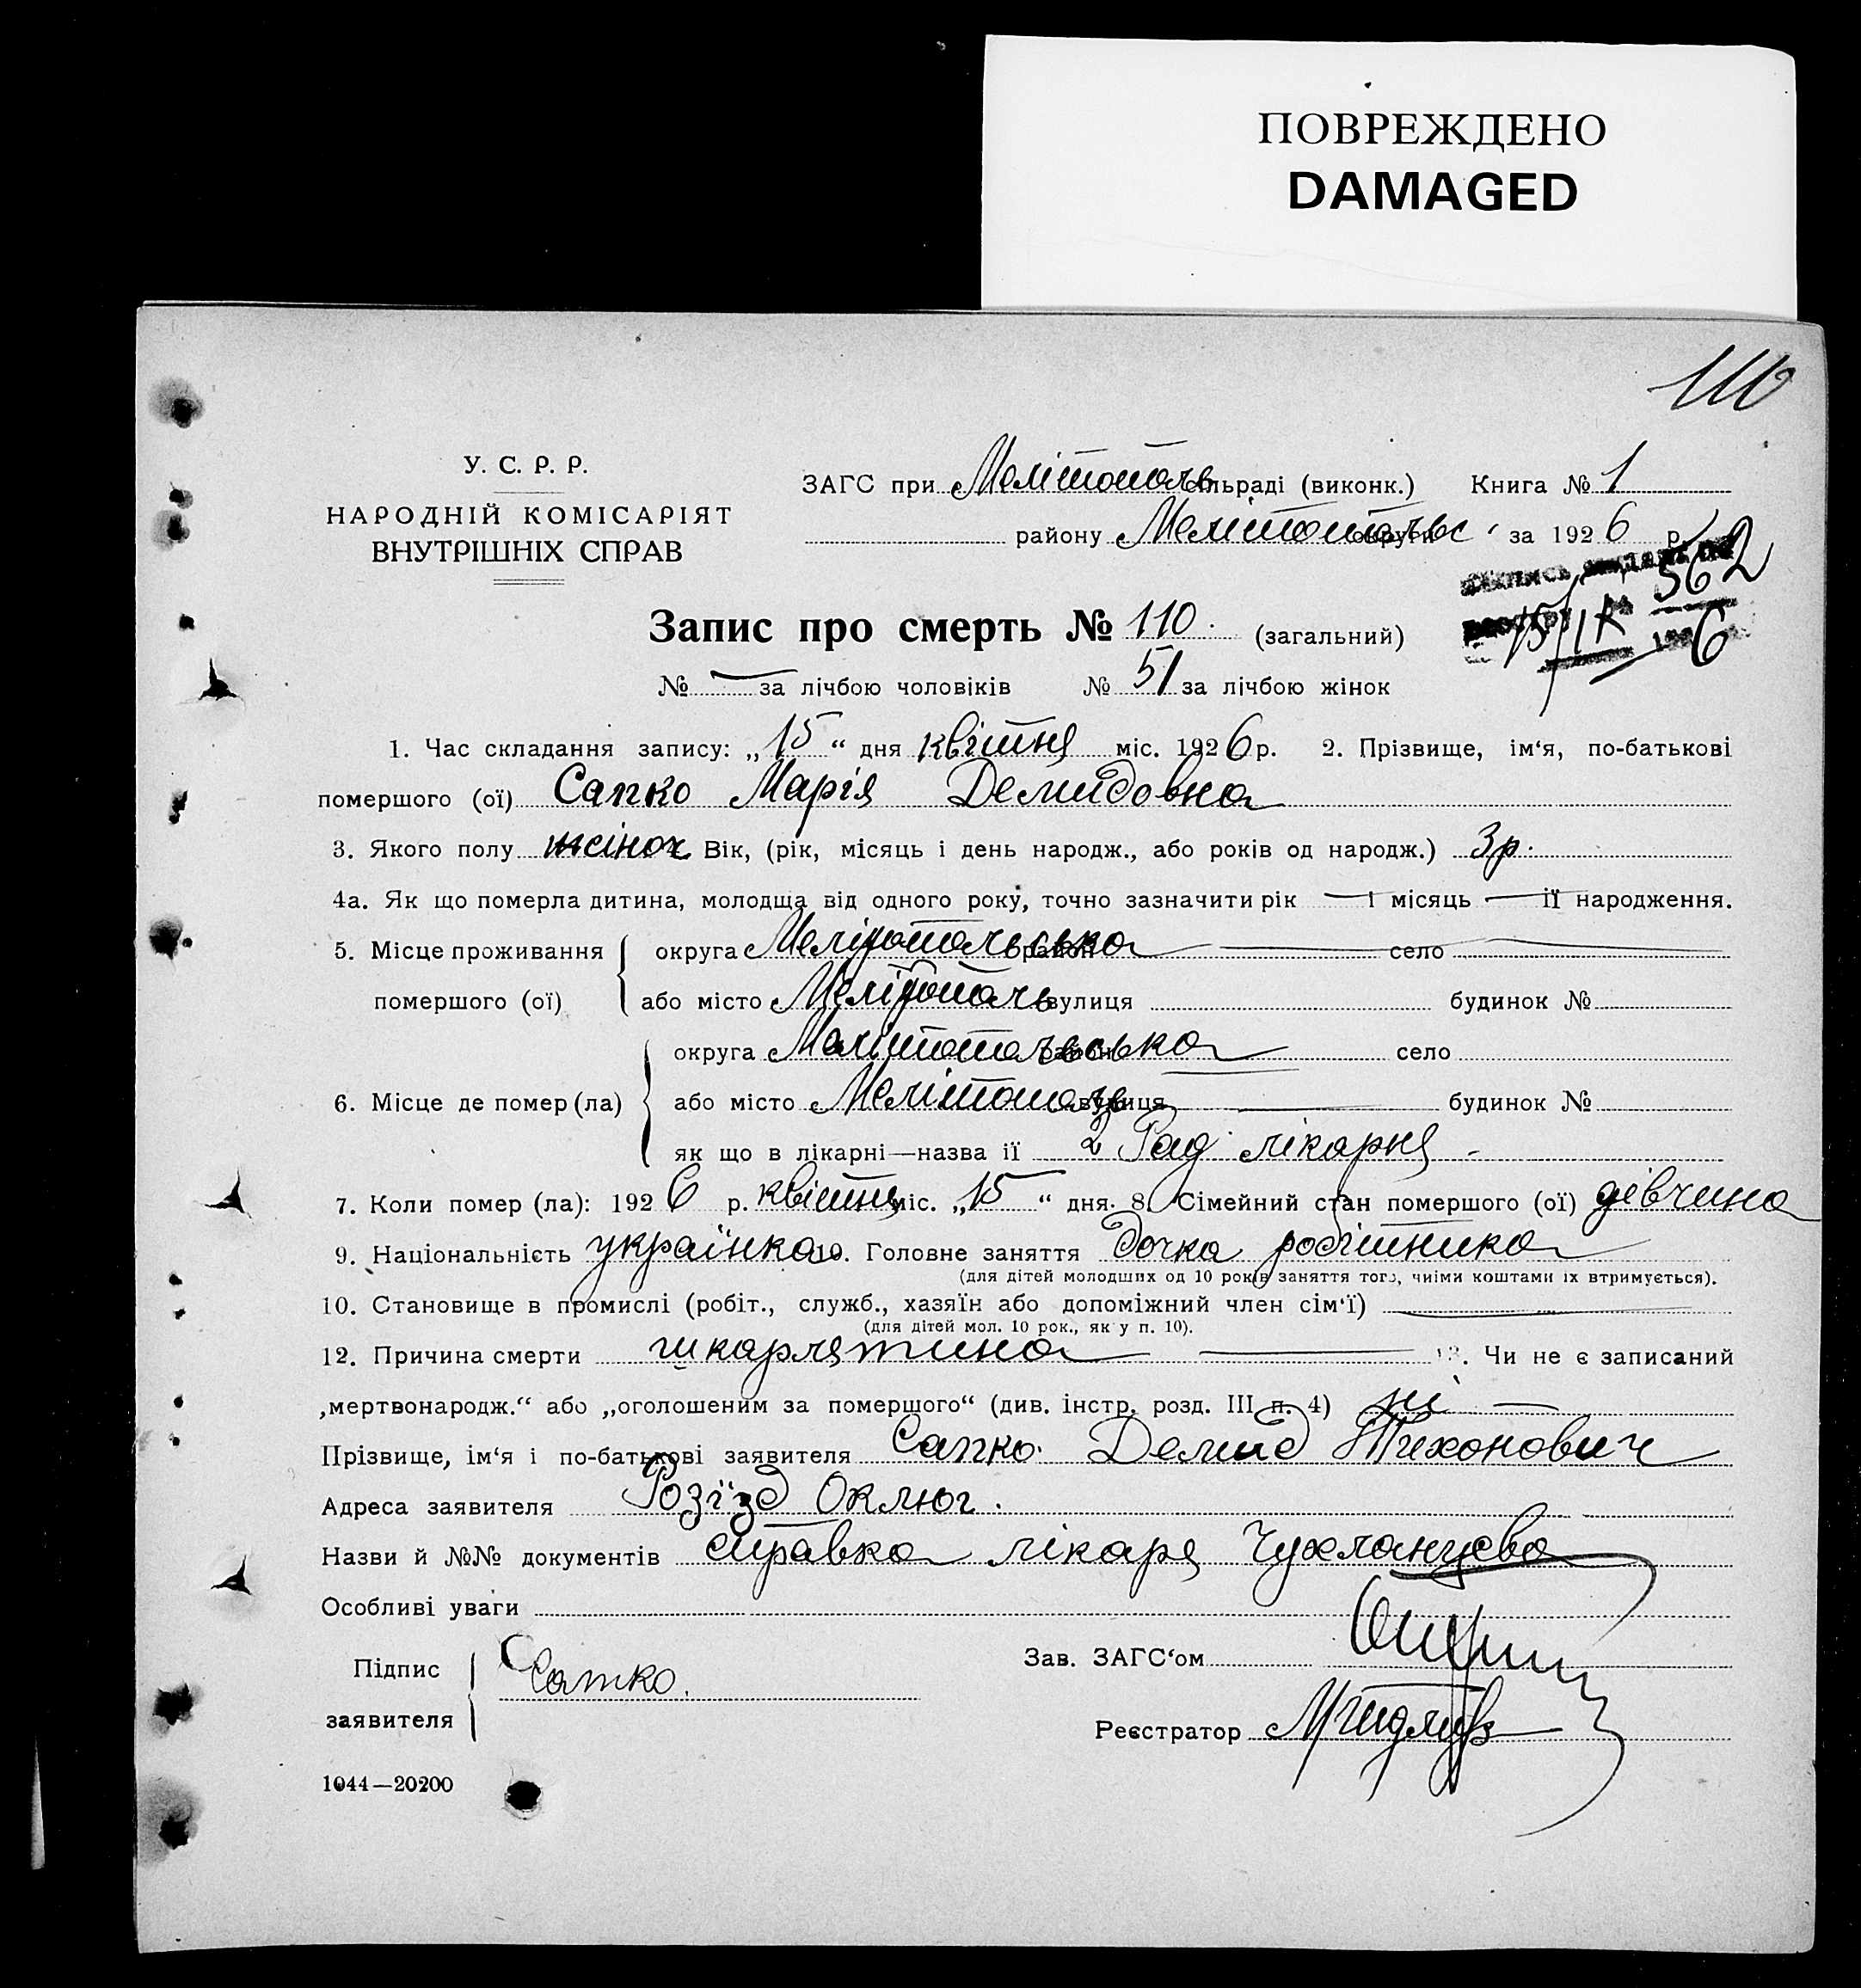 ПОВРЕЖДЕНО
DAMAGED
110
У. С. Р. Р.
НАРОДНІЙ КОМІСАРІЯТ
ВНУТРІШНІХ СПРАВ
ЗАГС при Мелітополь сільраді (виконк.) Книга № 1
району Мелітопольс округи за 1926 р.
562
15/IV 1926
Запис про смерть № 110. (загальний)
№ — за лічбою чоловіків № 51 за лічбою жінок
1. Час складання запису: „15“ дня квітня міс. 1926 р. 2. Прізвище, ім‘я, по-батькові
помершого (ої) Сапко Марія Демидовна
3. Якого полу жіноч Вік, (рік, місяць і день народж., або років од народж.) 3 р.
4а. Як що померла дитина, молодща від одного року, точно зазначити рік — і місяць — її народження.
5. Місце проживання помершого (ої) округа Мелітопольська район — село —
або місто Мелітополь вулиця будинок №
6. Місце де помер (ла) округа Мелітопольська район село
або місто Мелітополь вулиця — будинок №
як що в лікарні—назва її 2 Рад лікарня -
7. Коли помер (ла): 1926 р. квітня міс. „15“ дня. 8. Сімейний стан помершого (ої) дівчина
9. Національність українка 10. Головне заняття дочка робітника
(для дітей молодших од 10 років заняття того, чиїми коштами їх втримується).
10. Становище в промислі (робіт., служб., хазяїн або допоміжний член сім‘ї) —
(для дітей мол. 10 рок., як у п. 10).
12. Причина смерти шкарлятина — 13. Чи не є записаний
„мертвонародж.“ або „оголошеним за помершого“ (див. інстр. розд. III п. 4) ні —
Прізвище, ім‘я і по-батькові заявителя Сапко Демид Тихонович
Адреса заявителя Розїзд Оклюг.
Назви й №№ документів справка лікаря Чухланцева
Особливі уваги
Підпис заявителя Сапко.
Зав. ЗАГС‘ом
Реєстратор
1044—20200